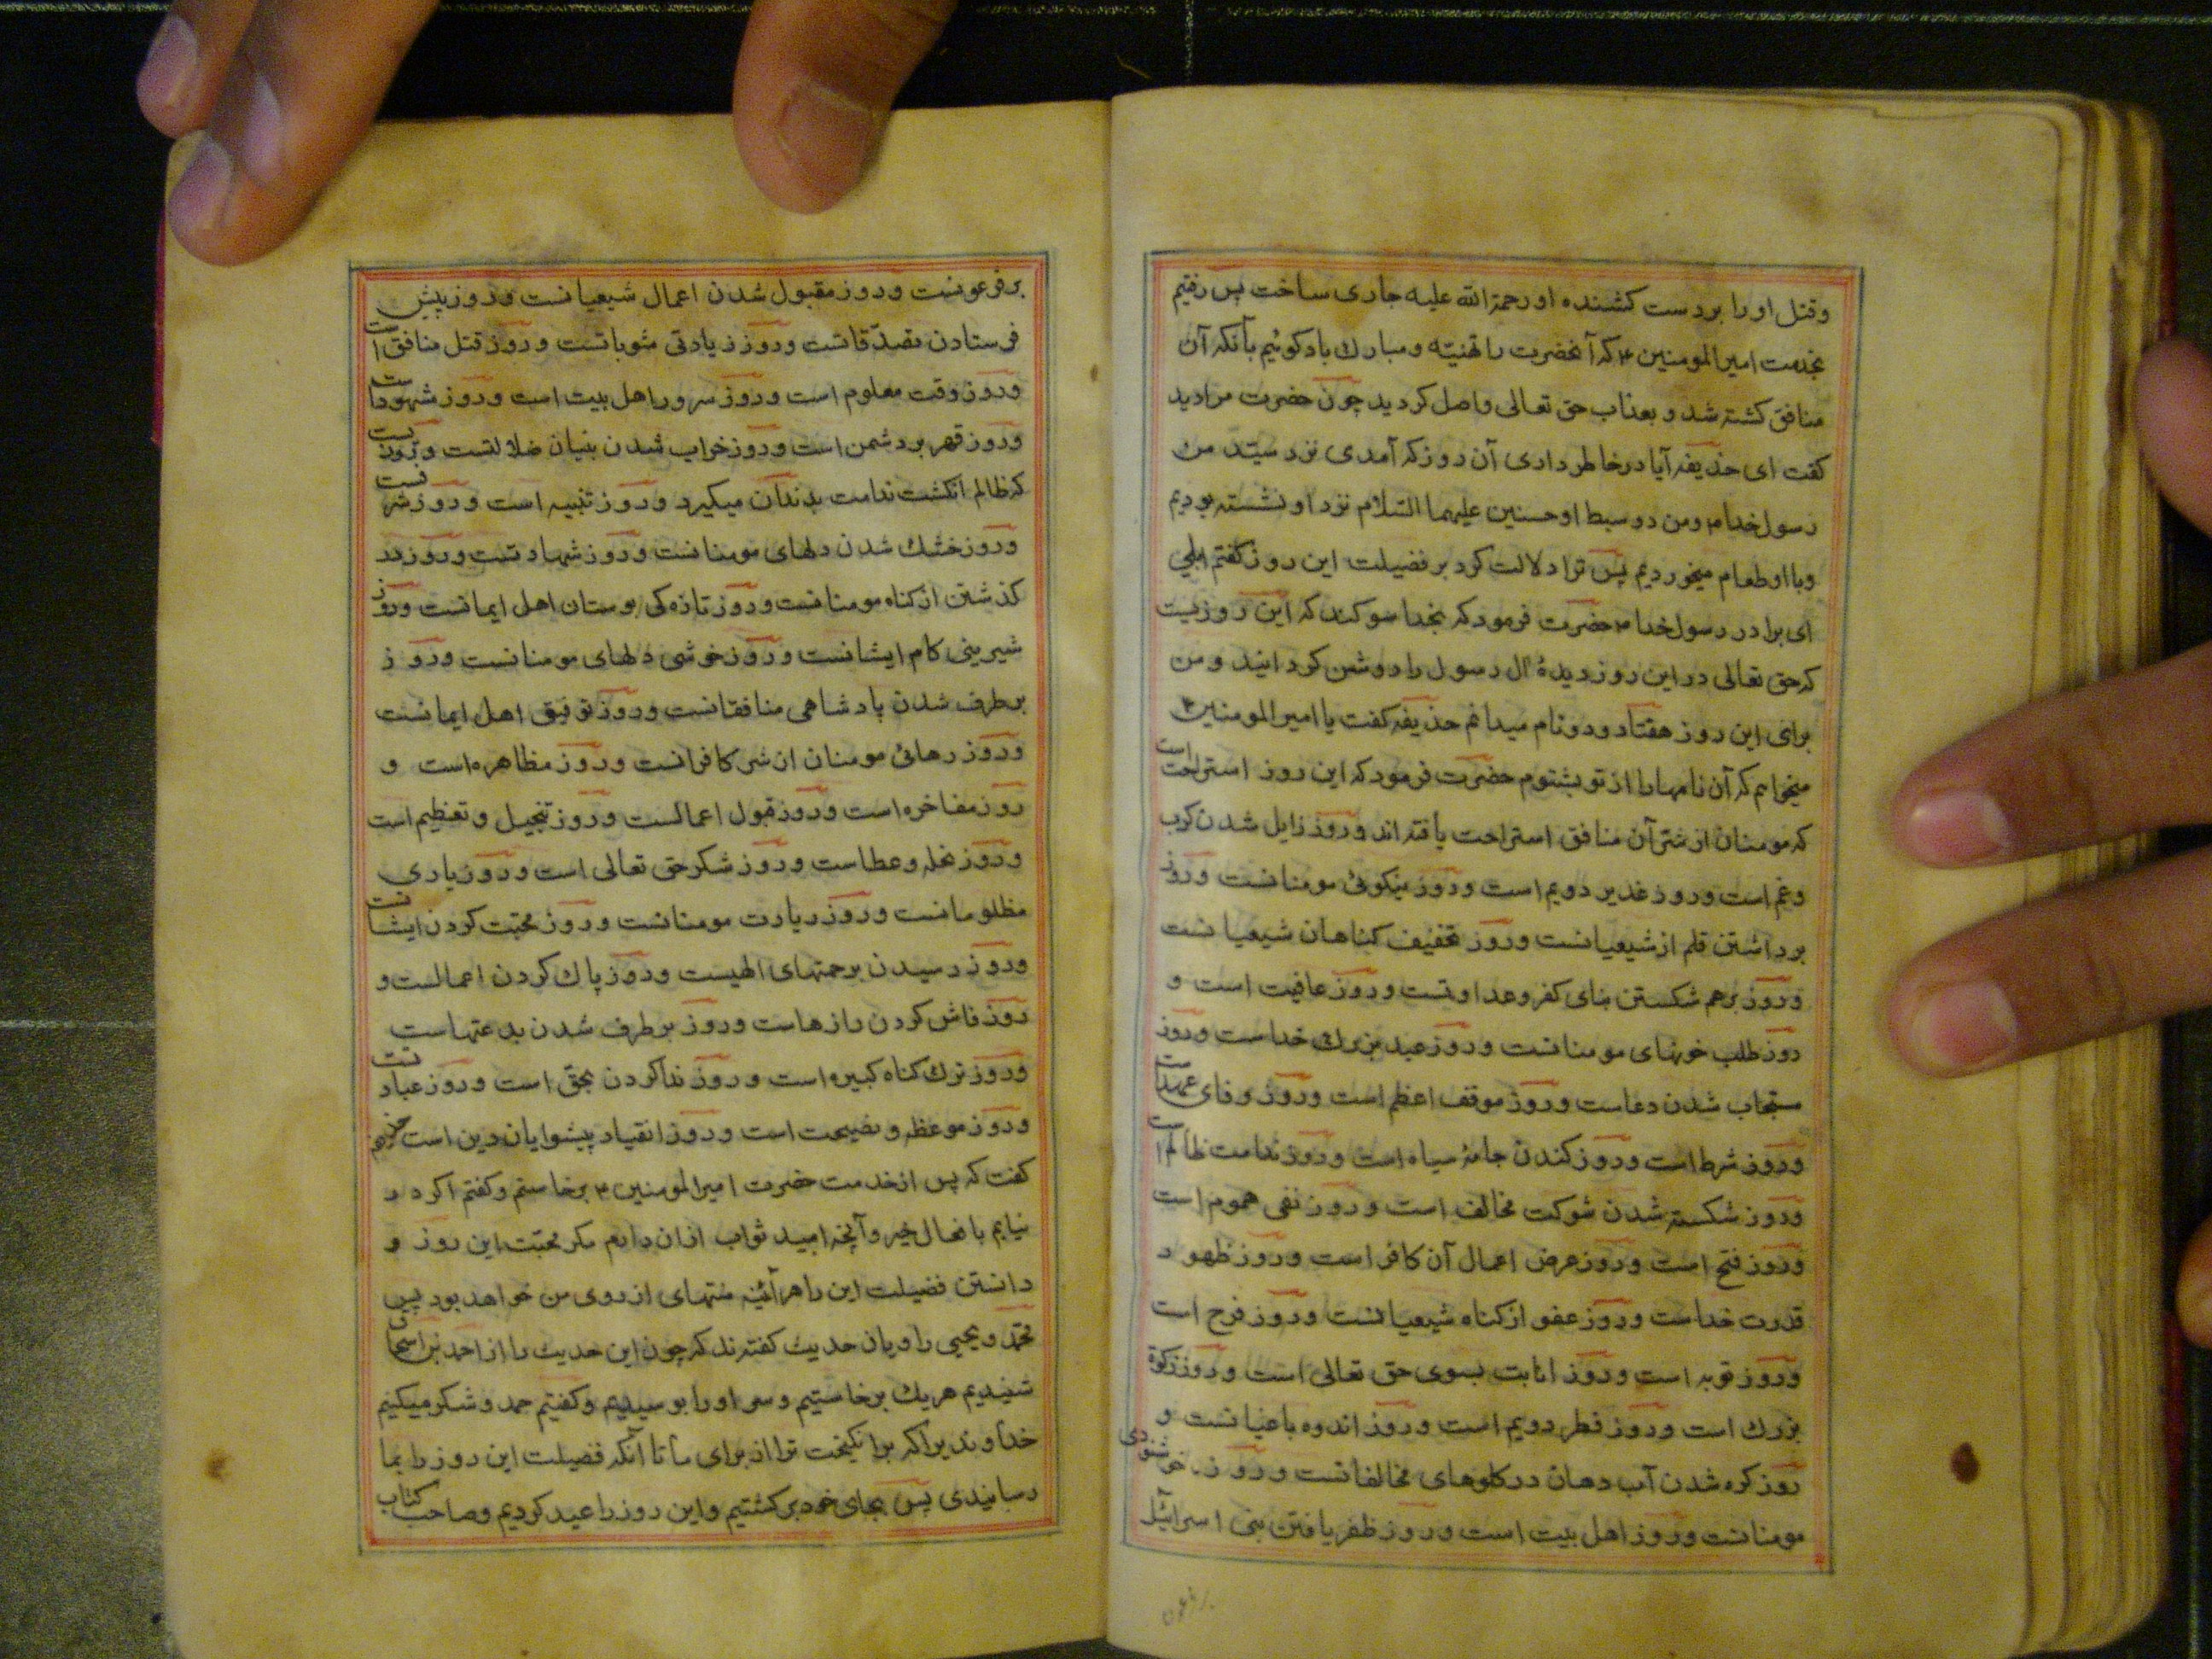 وقتل اورا بردست کشنده او رحمة الله علیه جاری ساخت پس رفتیم
بخدمت امیرالمومنین ۴ که آنحضرت را تهنیته و مبارك باد کوئیم بآنکه آن
منافق کشته شد و بعذاب حق تعالی واصل کردید چون حضرت مرا دید
کفت ای حذیفه آیا درخاطر داری آن روز که آمدی نزد سیّد من
رسول خدا ۴ ومن دوسبط او حسنین علیهما السّلام نزد او نشسته بودیم
وبا او طعام میخوردیم پس ترا دلالت کرد بر فضیلت این روز کفتم بلی
ای برادر رسول خدا ۴ حضرت فرمود که بخدا سوکند که این روزیست
که حق تعالی در این روز دیدهٔ آل رسول را روشن کردانید و من
برای این روز هفتاد و دو نام میدانم حذیفه کفت یا امیرالمومنین ۴
میخواهم که آن نامها را از تو بشنوم حضرت فرمود که این روز استراحت است
که مومنان از شر آن منافق استراحت یافته اند و روز زایل شدن کرب
وغم است و روز غدیر دویم است و روز نیکوئی مومنانست و روز
برداشتن قلم از شیعیانست و روز تخفیف کناهان شیعیانست
و روز برهم شکستن بنای کفر وعداوتست و روز عافیت است و
روز طلب خونهای مومنانست و روز عید بزرك خداست و روز
مستجاب شدن دعاست و روز موقف اعظم است و روز وفای عهد است
و روز شرط است و روز کندن جامهٔ سیاه است و روز ندامت ظالم است
و روز شکسته شدن شوکت مخالف است و روز نفی هموم است
و روز فتح است و روز عرض اعمال آن کافر است و روز ظهور
قدرت خداست و روز عفو از کناه شیعیانست و روز فرح است
و روز توبه است و روز انابت بسوی حق تعالی است و روز زکوة
بزرك است و روز فطر دویم است و روز اندوه باغیانست و
روز کره شدن آب دهان در کلوهای مخالفانست و روز خوشنودی
مومنانست و روز اهل بیت است و روز ظفر یافتن بنی اسرائیل
برفرعون
برفرعونست و روز مقبول شدن اعمال شیعیانست و روز پیش
فرستادن تصدّقاتست و روز زیادتی مثوباتست و روز قتل منافق است
و روز وقت معلوم است و روز سرور اهل بیت است و روز شهوداست
و روز قهر بر دشمن است و روز خراب شدن بنیان ضلالتست و
که ظالم انکشت ندامت بدندان میکیرد و روز تنبیه است و روز
و روز خنك شدن دلهای مومنانست و روز شهادتست و روز در
کذشتن از کناه مومنانست و روز تازه کی بوستان اهل ایمانست و روز
شیرینی کام ایشانست و روز خوشی دلهای مومنانست و روز
برطرف شدن پادشاهی منافقانست و روز توفیق اهل ایمانست
و روز رهائی مومنان از شر کافرانست و روز مظاهره است و
روز مفاخره است و روز قبول اعمالست و روز تبجیل و تعظیم است
و روز نحله وعطاست و روز شکر حق تعالی است و روز یاری
مظلومانست و روز زیارت مومنانست و روز محبّت کردن ایشانست
و روز رسیدن برحمتهای الهیست و روز پاك کردن اعمالست و
روز فاش کردن رازهاست و روز برطرف شدن بدعتهاست
و روز ترك کناه کبیره است و روز ندا کردن بحق است و روز عبادتست
و روز موعظه ونصیحت است و روز انقیاد پیشوایان دین است حذیفه
کفت که پس از خدمت حضرت امیرالمومنین ۴ برخاستم وکفتم اکر در
نیابم با فعال خیر وآنچه امید ثواب از ان دارم مکر محبّت این روز و
دانستن فضیلت این را هرآئینه منتهای ارزوی من خواهد بود پس
محمّد و یحیی راویان حدیث کفته‌ند که چون این حدیث را از احمد بن اسحاق
شنیدیم هریك برخاستیم وسر اورا بوسیدیم وکفتیم حمد وشکر میکنیم
خداوندیرا که برانکیخت ترا از برای ما تا آنکه فضیلت این روز را بما
رسانیدی پس بجای خود برکشتیم واین روز را عید کردیم وصاحب کتاب